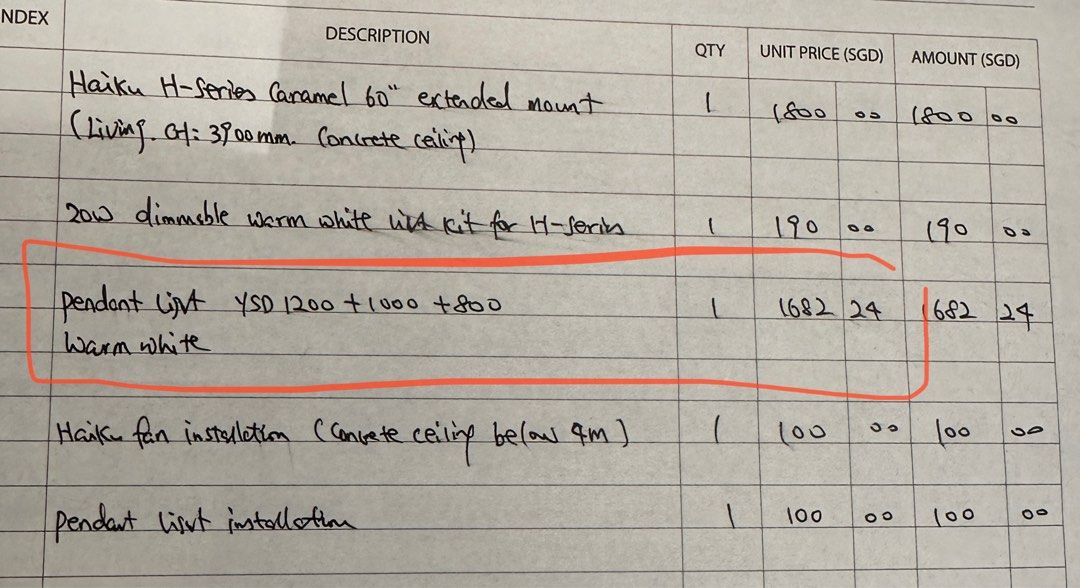 NDEX DESCRIPTION QTY UNIT PRICE (SGD) AMOUNT (SGD)
Haiku H-Series Caramel 60" extended mount 1 1800 00 1800 00
(Living. CH: 3900mm. Concrete ceiling)
20W dimmable warm white kit for H-Series 1 190 00 190 00
pendant light YSD 1200 + 1000 + 800 1 1682 24 1682 24
Warm white
Haiku fan installation (Concrete ceiling below 4m) 1 100 00 100 00
pendant light installation 1 100 00 100 00